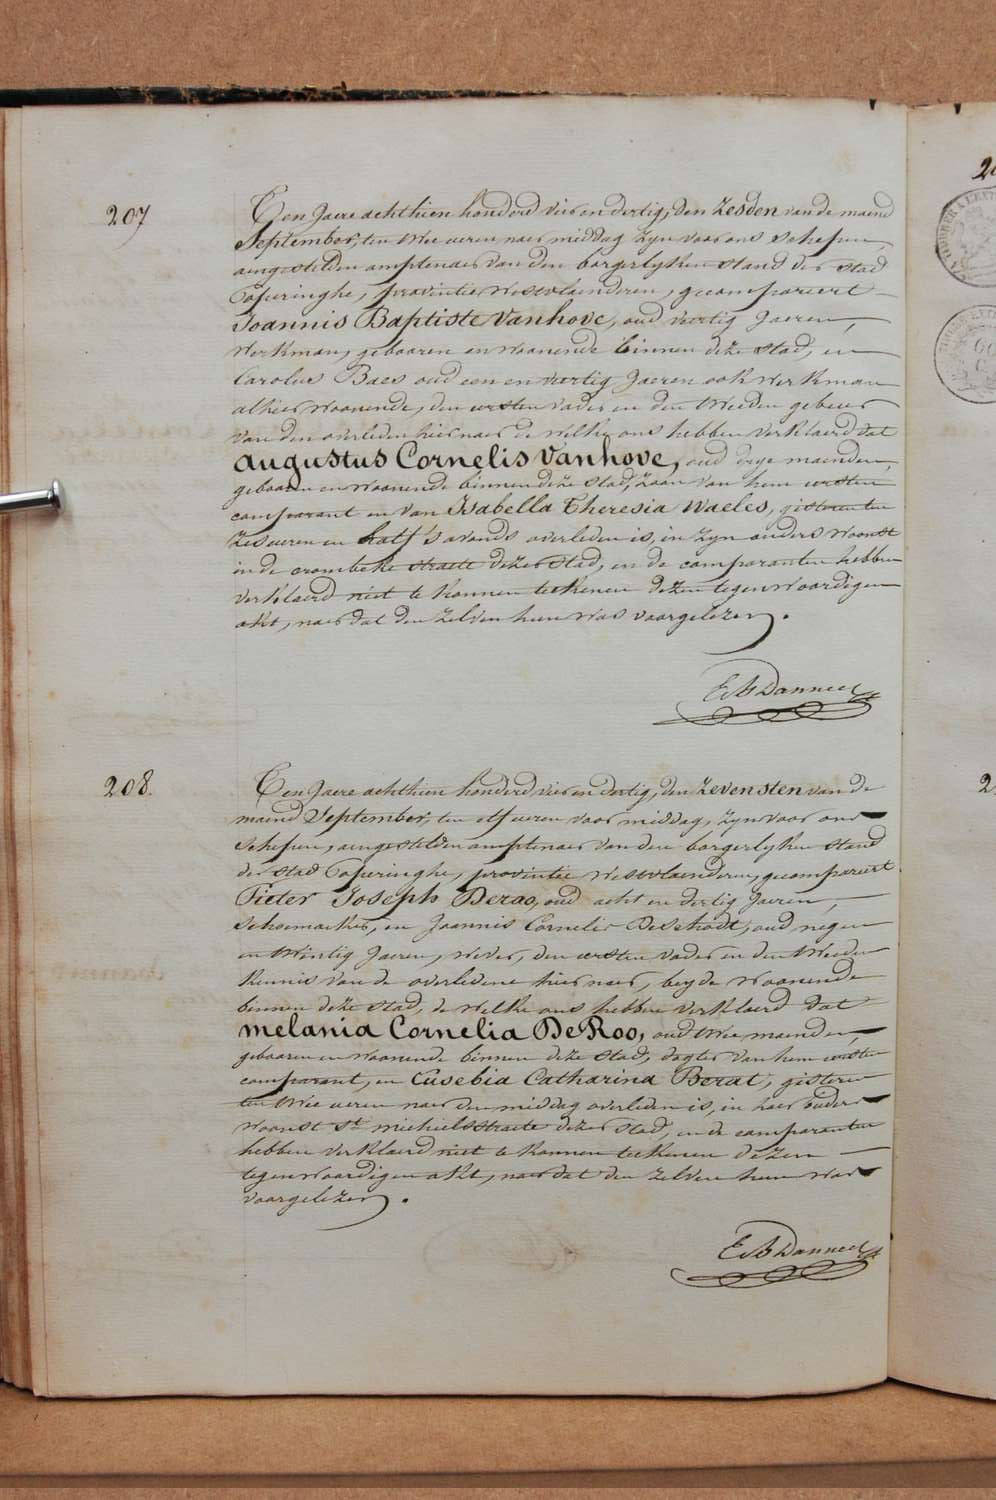 207
Ten Jaere achthien honderd vier en dertig, den zesden van de maend
September, ten twee ueren naer middag zyn voor ons schepen,
aengestelden amptenaer van den borgerlyken stand der stad
Poperinghe, provintie Westvlaenderen, gecompareert
Joannis Baptiste Vanhove, oud veertig Jaeren,
Werkman, gebooren en woonende binnen deze stad, en
Carolus Baes oud een en veertig Jaeren ook Werkman
alhier woonende, den eersten vader en den tweeden gebuer
van den overleden hier naer de welke ons hebben verklaerd dat
augustus Cornelis Vanhove, oud drye maenden,
gebooren en woonende binnen deze stad, zoon van hem eersten
comparant en van Isabella Theresia Waeles, gisteren ten
zes ueren en half 's avonds overleden is, in zyn ouders woonst
in de crombeke straete dezer stad, en de comparanten hebben
verklaerd niet te konnen teekenen dezen tegenwoordigen
akt, naer dat den zelven hun was voorgelezen.
E A B Danneel
208.
Ten Jaere achthien honderd vier en dertig, den zevensten van de
maend September, ten elf ueren voor middag, zyn voor ons
schepen, aengestelden amptenaer van den borgerlyken stand
der stad Poperinghe, provintie Westvlaenderen, gecompareert
Pieter Joseph Deroo, oud acht en dertig Jaeren,
schoemaeker, en Joannis Cornelis Deschodt, oud negen
en twintig Jaeren, wever, den eersten vader en den tweeden
kennis van de overledene hier naer, beyde woonende
binnen deze stad, de welke ons hebben verklaerd dat
melania Cornelia DeRoo, oud twee maenden,
gebooren en woonende binnen deze stad, dogter van hem eersten
comparant, en Eusebia Catharina Berat, gisteren
ten twee ueren naer den middag overleden is, in haer ouders
woonst St. michielsstraete dezer stad, en de comparanten
hebben verklaerd niet te konnen teekenen dezen
tegenwoordigen akt, naer dat den zelven hun was
voorgelezen.
E A B Danneel